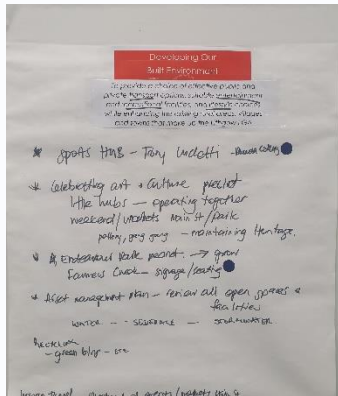 Developing Our
Built Environment
To provide a choice of effective public and
private transport options, suitable entertainment
and recreational facilities, and lifestyle choices
while enhancing the existing rural areas, villages
and towns that make up the Lithgow LGA
* Sports HUB - Tony Luchetti
* Celebrating art + culture precinct
little hubs - operating together
weekend/markets Main St/Park
pottery, - maintaining Heritage.
* Endeavour Park precinct. →
Farmers Creek - signage/seating
* Asset management plan - review all open spaces &
facilities
WATER - - SEWERAGE - STORMWATER.
- green bins - etc
events/markets